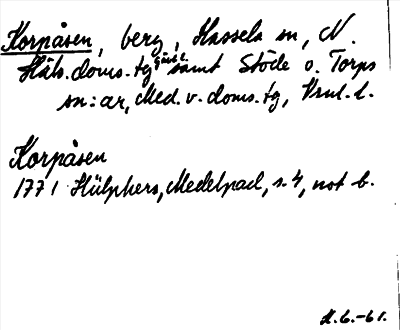 Korpåsen, berg, Hassela sn, N.
Häls. doms.tg, Gävl.l. samt Stöde o. Torps
sn:ar, Med. v. doms.tg, Vrnl.l.
Korpåsen
1771 Hülphers, Medelpad, s. 4, not b.
H.G.-61.